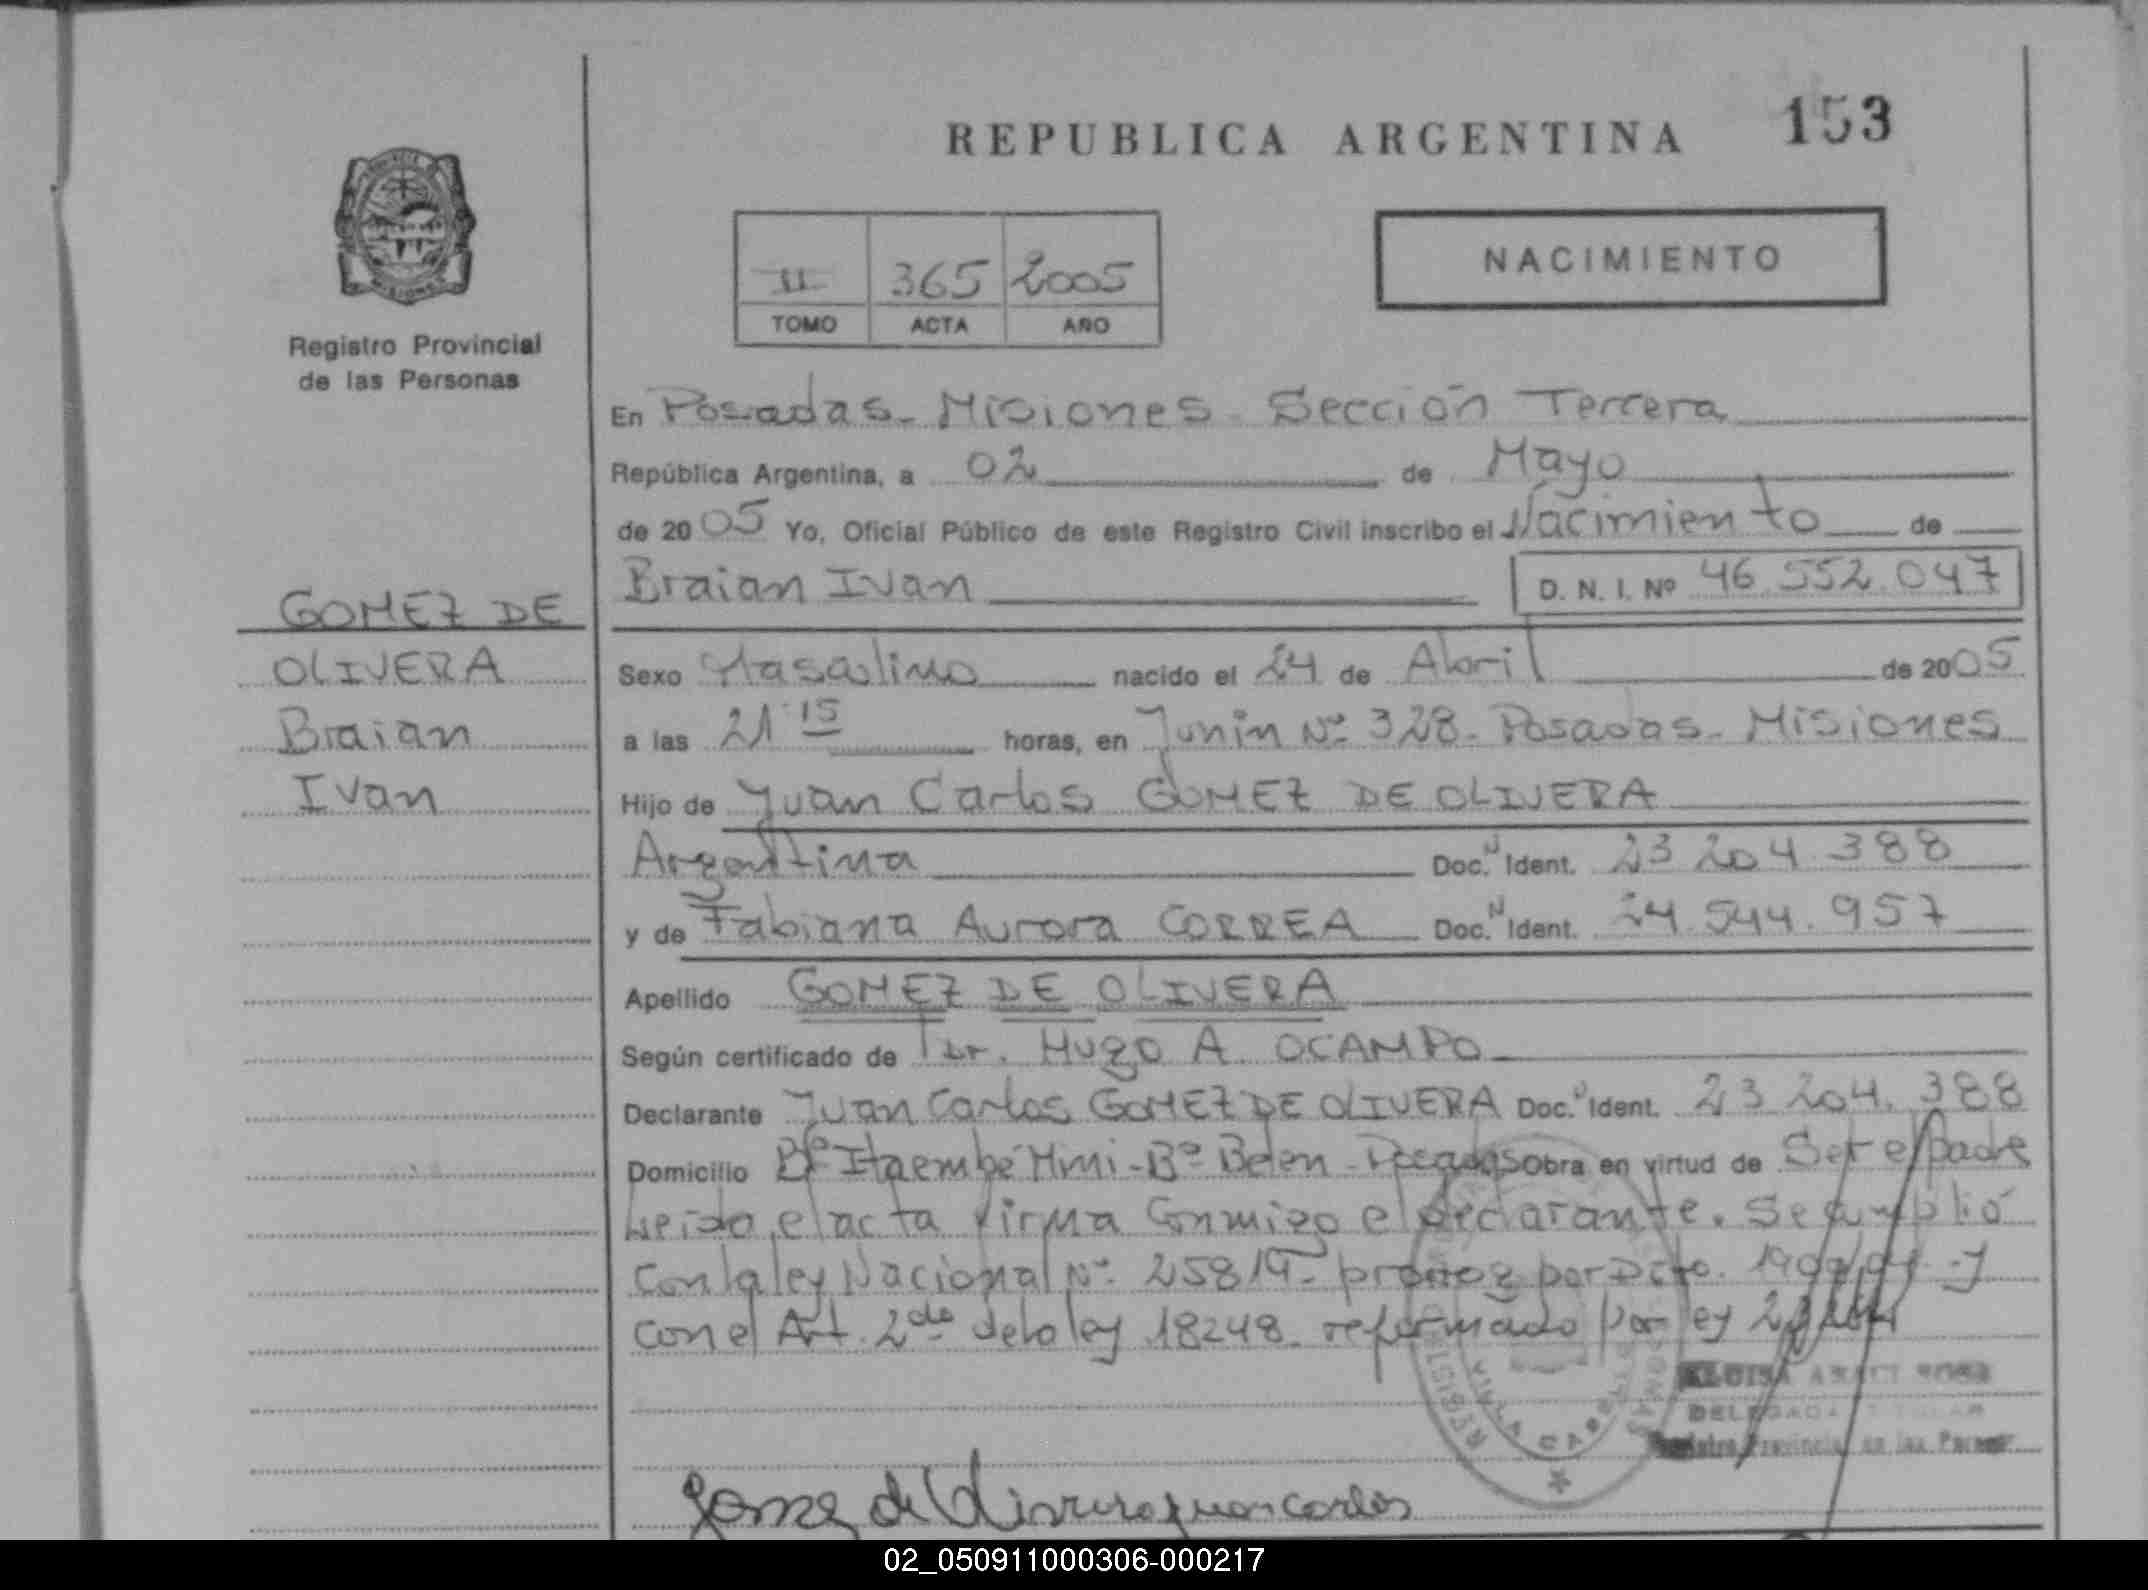 REPUBLICA ARGENTINA 153
II 365 2005
TOMO ACTA AÑO
NACIMIENTO
MISIONES
Registro Provincial
de las Personas
GOMEZ DE
OLIVERA
Braian
Ivan
En Posadas - Misiones - Sección Tercera
República Argentina, a 02 de Mayo
de 2005 Yo, Oficial Público de este Registro Civil inscribo el Nacimiento de
Braian Ivan D. N. I. Nº 46.552.047
Sexo Masculino nacido el 24 de Abril de 2005
a las 21 15 horas, en Junín Nº 328 - Posadas - Misiones
Hijo de Juan Carlos GOMEZ DE OLIVERA
Argentina Doc. N Ident. 23 204.388
y de Fabiana Aurora CORREA Doc. N Ident. 24.544.957
Apellido GOMEZ DE OLIVERA
Según certificado de Hugo A. OCAMPO
Declarante Juan Carlos GOMEZ DE OLIVERA Doc. Ident. 23 204.388
Domicilio Bº Itaembé Mini - Bº Belen - Posadas obra en virtud de Ser el padre
Leida el acta firma Conmigo el declarante. Se cumplió
Con la ley Nacional Nº 25819 - por Dcto. y
con el Art. 2do de la ley 18248 - reformado por ley
DELEGADA TITULAR
Registro Provincial de las Personas
Gomez de Olivera Juan Carlos
02_050911000306-000217